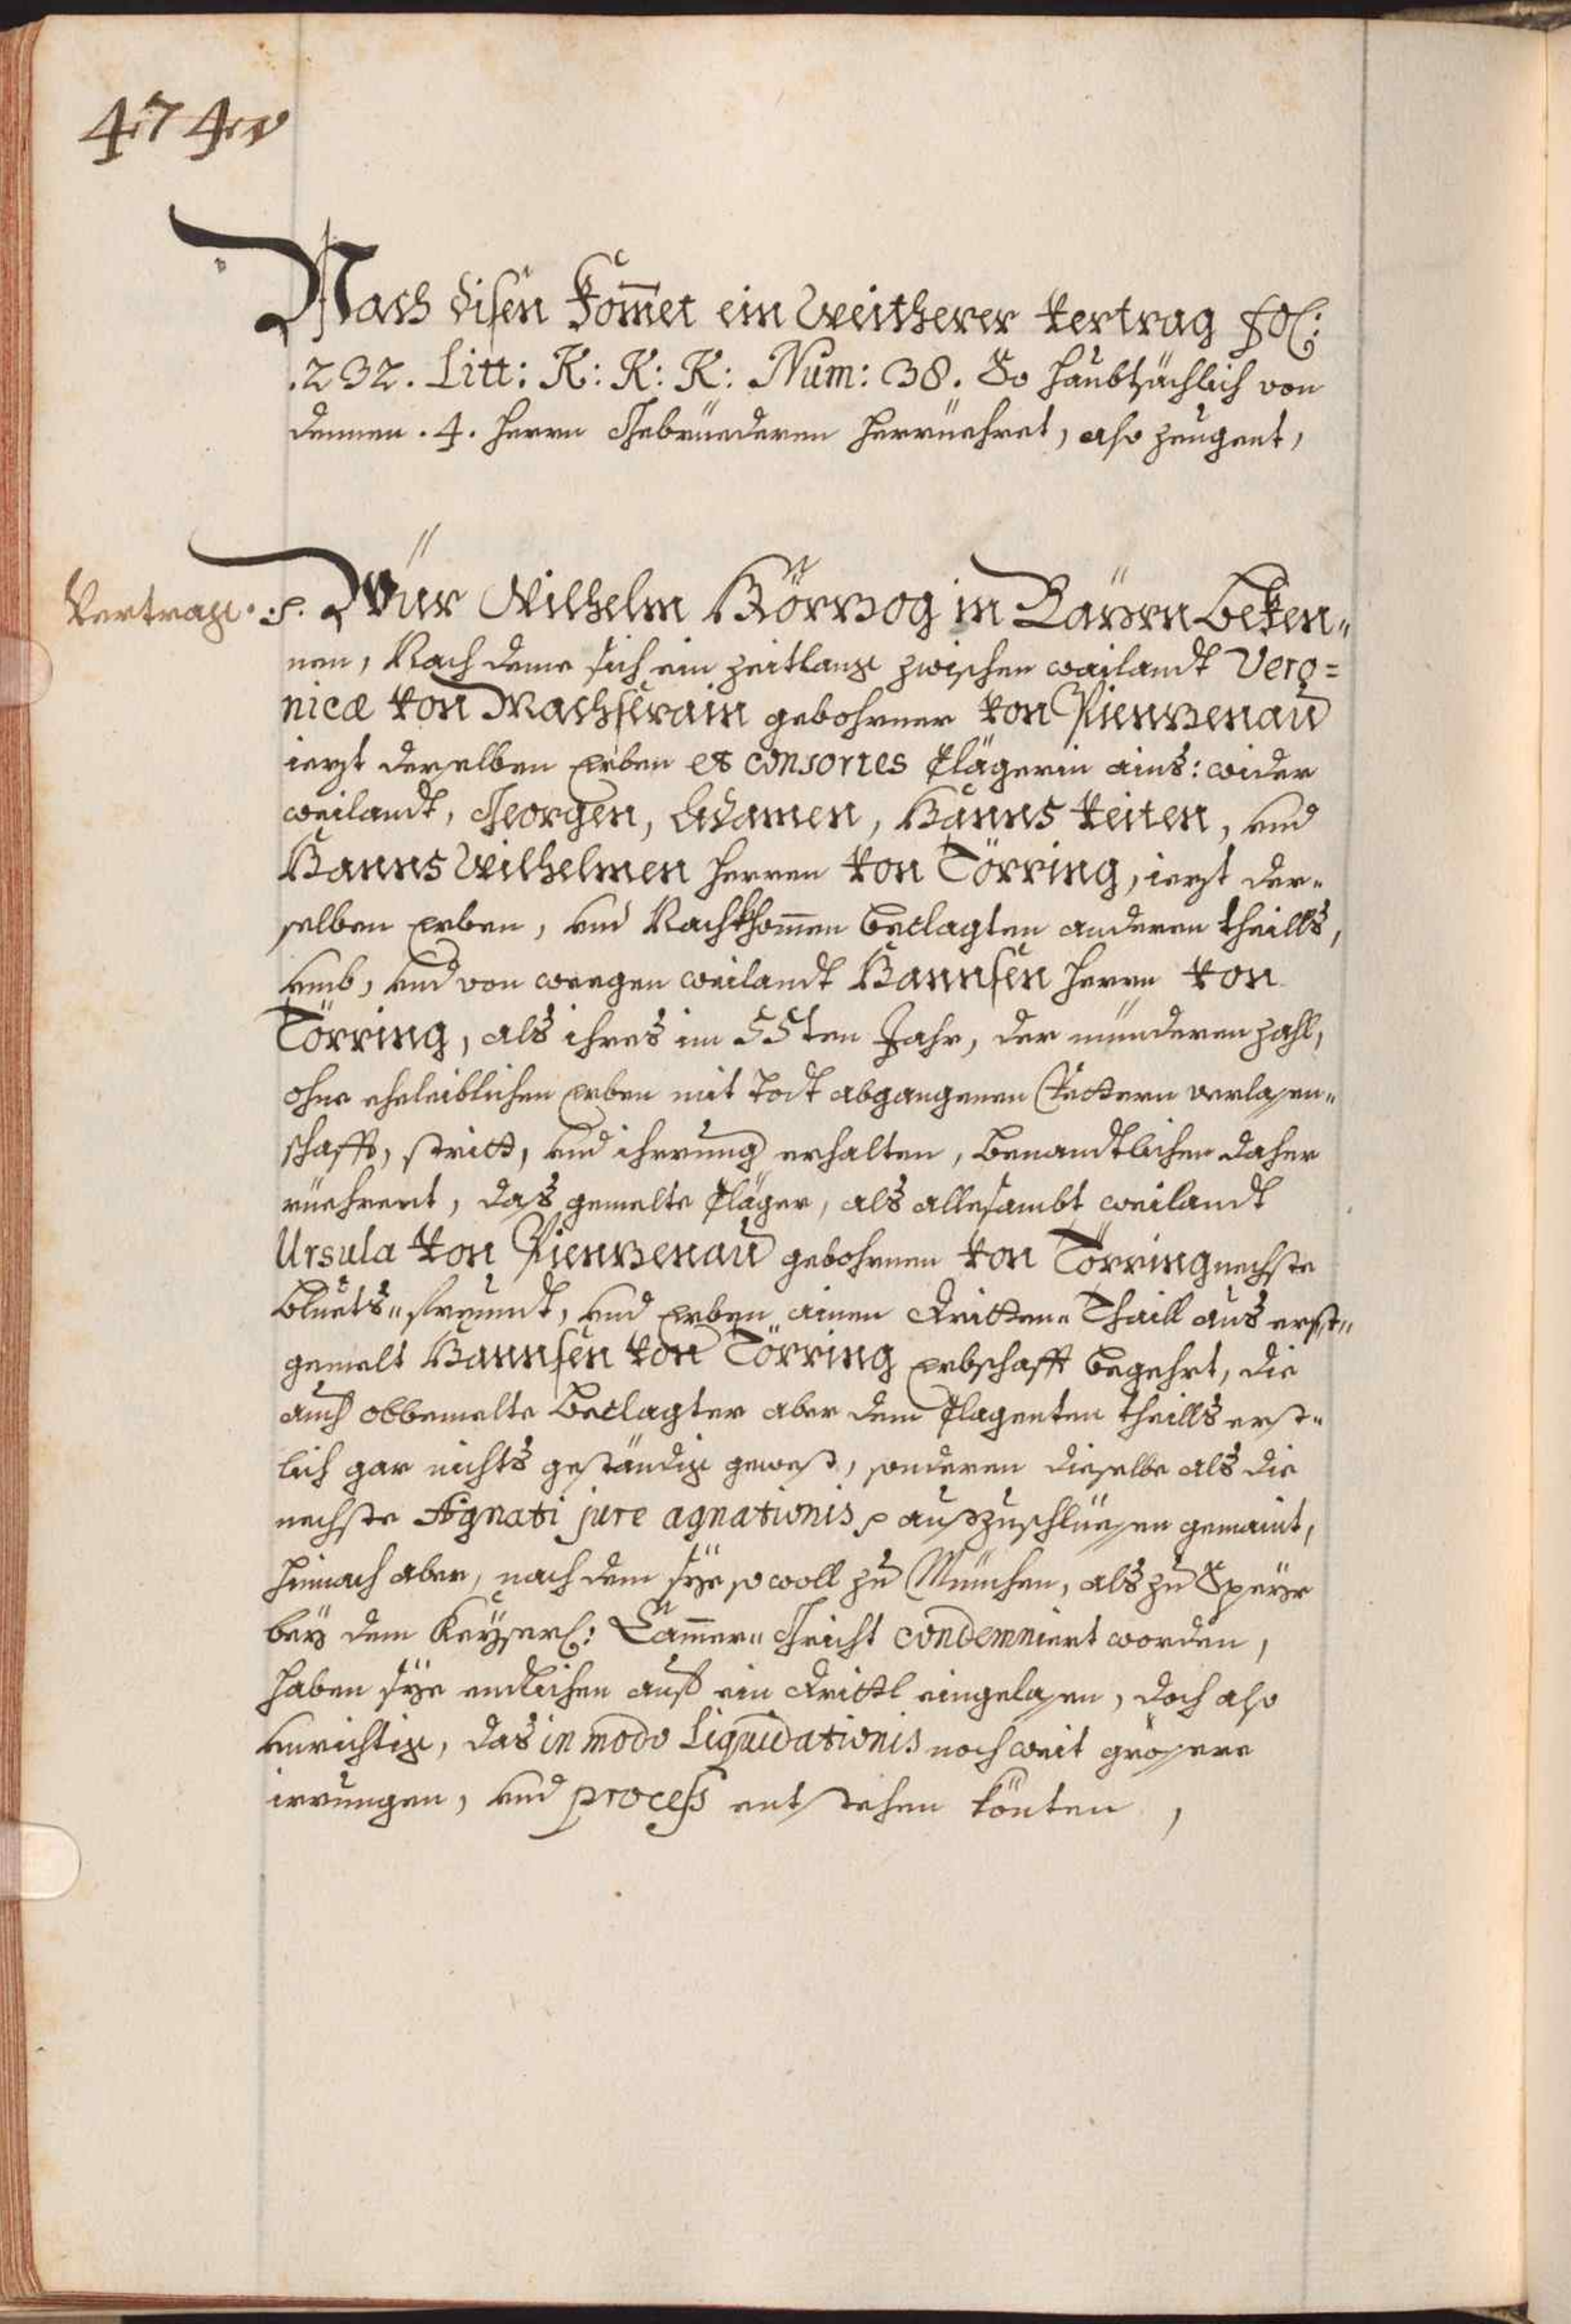 474v
Nach disen kom̄et ein Weitherer Vertrag fol:
.232. Litt: K: K: K: Num: 38. So haubtsächlich von
dennen .4. herrn Gebrüederen herrüehret, also zeugent,
Vertrag. .p. Wür Wilhelm Hörzog in Bayrn beken„
nen, Nach deme sich ein zeitlang zwischen weilandt Vero=
nicæ von Machselrain gebohrner von Pienzenau
iezt derselben erben et consortes Clägerin ains: wider
weilandt, Georgen, Adamen, Hanns Veiten, und
Hanns Wilhelmen herren von Törring, iezt der„
selben erben, und Nachkhom̄en beclagten anderen theills,
umb, und von weegen weilandt Hannsen herrn von
Törring, als ihres im 55ten Jahr, der münderen zahl,
ohne eheleiblichen erben mit todt abgangenen Vettern verlasen„
schafft, stritt, und ihrrung erhalten, benandtlichen daher
rüehrent, das gemelte Cläger, als allesambt weilandt
Ursula von Pienzenau gebohrnen von Törring nechste
bluets„freundt, und erben ainen dritten„ Thaill aus erst„
gemelt Hannsen von Törring erbschafft begehrt, die
auch obbemelte beclagter aber dem Clagenten theills erst„
lich gar nichts geständig gewest, sonderen dieselbe als die
nechste Agnati jure agnationis p außzuschlüesen gemaint,
hinnach aber, nach dem sye so woll zu München, als zu Speyr
bey dem Keyserl: Cam̄er„ Gricht condemniert worden,
haben sye endtlichen auf ein drittl eingelasen, doch also
unrichtig, das in modo Liquidationis noch weit grösere
irrungen, und process entstehen könten,